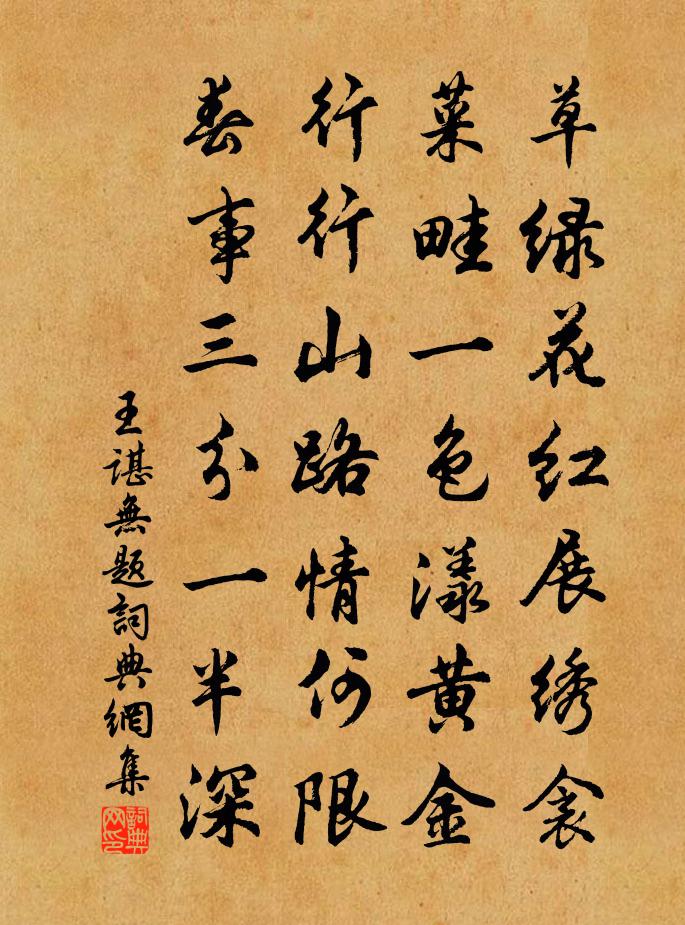 草绿花红展绣衾
菜畦一色漾黄金
行行山路情何限
春事三分一半深
王谌無题詞典網集
詞典网印